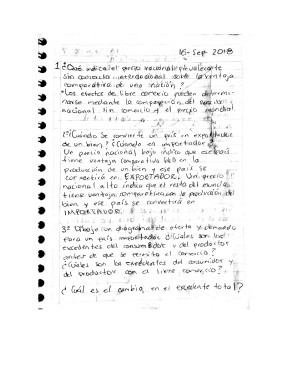 16-Sep 2018
1 ¿Qué indica el precio nacional prevaleciente
sin comercio internacional sobre la ventaja
comparativa de una nación?
Los efectos de libre comercio pueden determi-
narse mediante la comparación del precio
nacional sin comercio y el precio mundial.
2° ¿Cuándo se convierte un país en exportador
de un bien? ¿Cuándo en importador?
Un precio nacional bajo indica que ese país
tiene ventaja comparativa en la
producción de un bien y ese país se
convertirá en EXPORTADOR. Un precio
nacional alto indica que el resto del mundo
tiene ventaja comparativa en la producción del
bien y ese país se convertirá en
IMPORTADOR.
3° Dibuje un diagrama de oferta y demanda
para un país importador ¿Cuáles son los
excedentes del consumidor y del productor
antes de que se permita el comercio?
¿Cuáles son los excedentes del consumidor y
del productor con el libre comercio?
¿Cuál es el cambio en el excedente total?